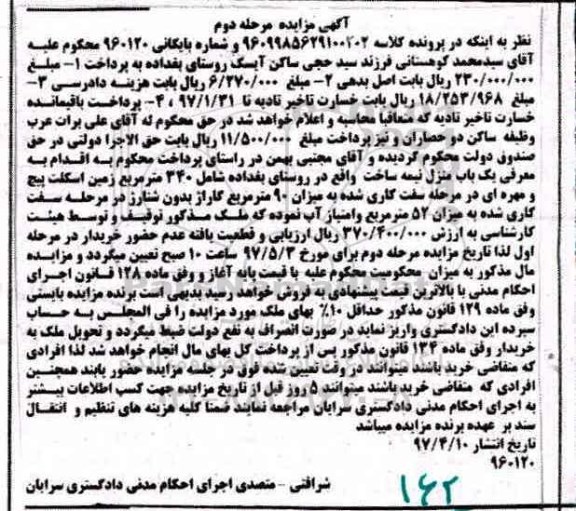 آگهی مزایده مرحله دوم
نظر به اینکه در پرونده کلاسه ۹۶۰۹۹۸۵۶۲۹۱۰۰۲۰۲ و شماره بایگانی ۹۶۰۱۲۰ محکوم علیه
آقای سیدمحمد کوهستانی فرزند سید حجی ساکن آیسک روستای بغداده به پرداخت ۱- مبلغ
۲۳۰/۰۰۰/۰۰۰ ریال بابت اصل بدهی ۲- مبلغ ۶/۲۷۰/۰۰۰ ریال بابت هزینه دادرسی ۳-
مبلغ ۱۸/۲۵۳/۹۶۸ ریال بابت خسارت تاخیر تادیه تا ۹۷/۱/۳۱ ۴- پرداخت باقیمانده
خسارت تاخیر تادیه که متعاقبا محاسبه و اعلام خواهد شد در حق محکوم له آقای علی برات عرب
وظیفه ساکن دو حصاران و نیز پرداخت مبلغ ۱۱/۵۰۰/۰۰۰ ریال بابت حق الاجرا دولتی در حق
صندوق دولت محکوم گردیده و آقای مجتبی بهمن در راستای پرداخت محکوم به اقدام به
معرفی یک باب منزل نیمه ساخت واقع در روستای بغداده شامل ۳۴۰ مترمربع زمین اسکلت پیچ
و مهره ای در مرحله سفت کاری شده به میزان ۹۰ مترمربع کاراژ بدون شنارژ در مرحله سفت
کاری شده به میزان ۵۲ مترمربع وامتیاز آب نموده که ملک مذکور توقیف و توسط هیئت
کارشناسی به ارزش ۳۷۰/۴۰۰/۰۰۰ ریال ارزیابی و قطعیت یافته عدم حضور خریدار در مرحله
اول لذا تاریخ مزایده مرحله دوم برای مورخ ۹۷/۵/۳ ساعت ۱۰ صبح تعیین میگردد و مزایده
مال مذکور به میزان محکومیت محکوم علیه با قیمت پایه آغاز و وفق ماده ۱۲۸ قانون اجرای
احکام مدنی با بالاترین قیمت پیشنهادی به فروش خواهد رسید بدیهی است برنده مزایده بایستی
وفق ماده ۱۲۹ قانون مذکور حداقل ۱۰٪ بهای ملک مورد مزایده را فی المجلس به حساب
سپرده این دادگستری واریز نماید در صورت انصراف به نفع دولت ضبط میگردد و تحویل ملک به
خریدار وفق ماده ۱۳۴ قانون مذکور پس از پرداخت کل بهای مال انجام خواهد شد لذا افرادی
که متقاضی خرید باشند میتوانند در وقت تعیین شده فوق در جلسه مزایده حضور یابند همچنین
افرادی که متقاضی خرید باشند میتوانند ۵ روز قبل از تاریخ مزایده جهت کسب اطلاعات بیشتر
به اجرای احکام مدنی دادگستری سرایان مراجعه نمایند ضمنا کلیه هزینه های تنظیم و انتقال
سند بر عهده برنده مزایده میباشد
تاریخ انتشار ۹۷/۴/۱۰
۹۶۰۱۲۰
شرافتی - متصدی اجرای احکام مدنی دادگستری سرایان
۱۶۲